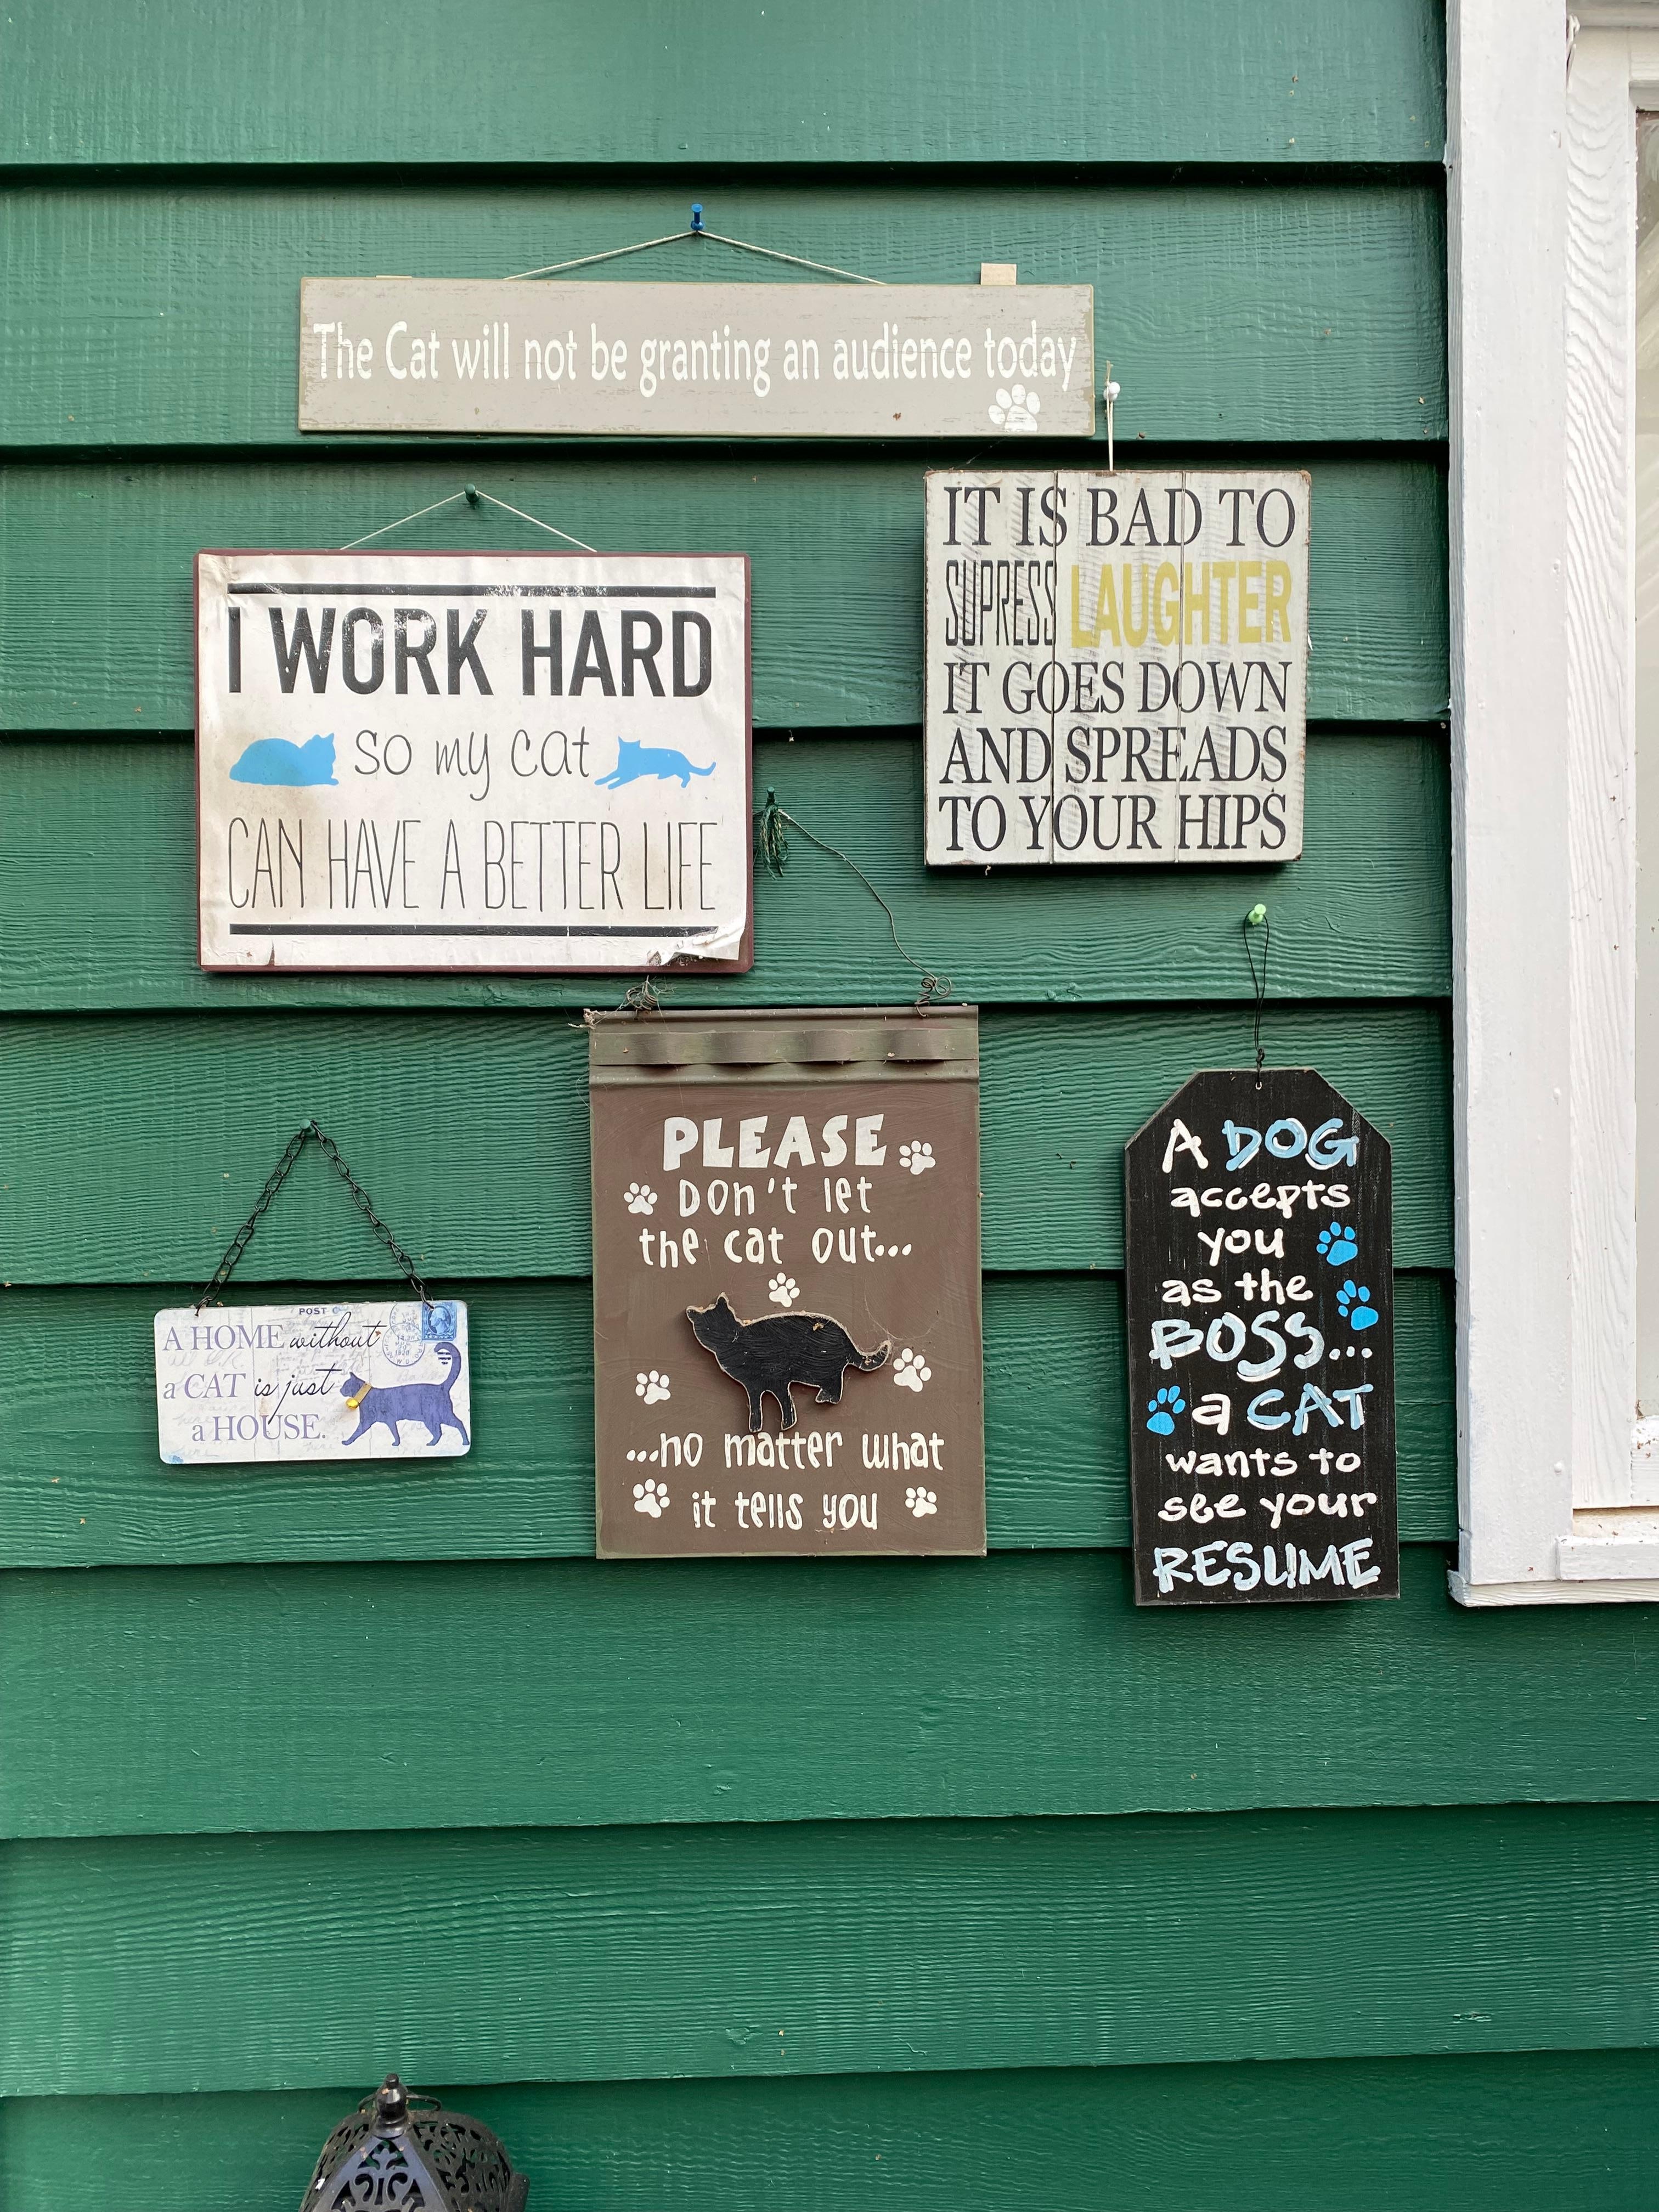 The Cat will not be granting an audience today
I WORK HARD
so my cat
CAN HAVE A BETTER LIFE
IT IS BAD TO
SUPRESS LAUGHTER
IT GOES DOWN
AND SPREADS
TO YOUR HIPS
POST
A HOME without
a CAT is just
a HOUSE.
PLEASE
Don't let
the cat out...
...no matter what
it tells you
A DOG
accepts
you
as the
BOSS...
a CAT
wants to
see your
RESUME